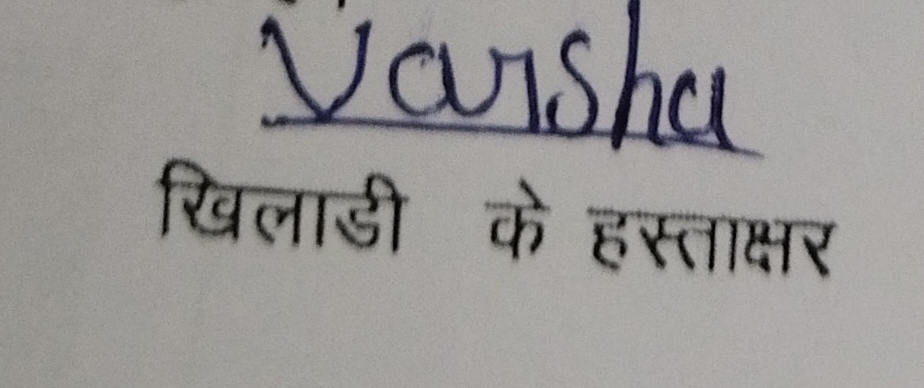 Varsha
खिलाडी के हस्ताक्षर